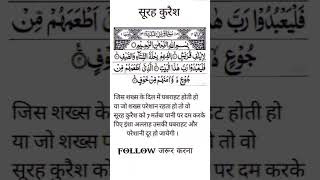 सूरह क़ुरैश
بِسْمِ اللّٰهِ الرَّحْمٰنِ الرَّحِيْمِ
لِاِيْلٰفِ قُرَيْشٍ اٖلٰفِهِمْ رِحْلَةَ الشِّتَآءِ وَالصَّيْفِ
فَلْيَعْبُدُوْا رَبَّ هٰذَا الْبَيْتِ الَّذِيْٓ اَطْعَمَهُمْ مِّنْ
جُوْعٍ وَّاٰمَنَهُمْ مِّنْ خَوْفٍ
जिस शख्स के दिल में घबराहट होती हो
या जो शख्स परेशान रहता हो तो वो
सूरह कुरैश को 7 मर्तबा पानी पर दम करके
पिए इंशा अल्लाह उसकी घबराहट और
परेशानी दूर हो जायेगी ।
FOLLOW जरूर करना